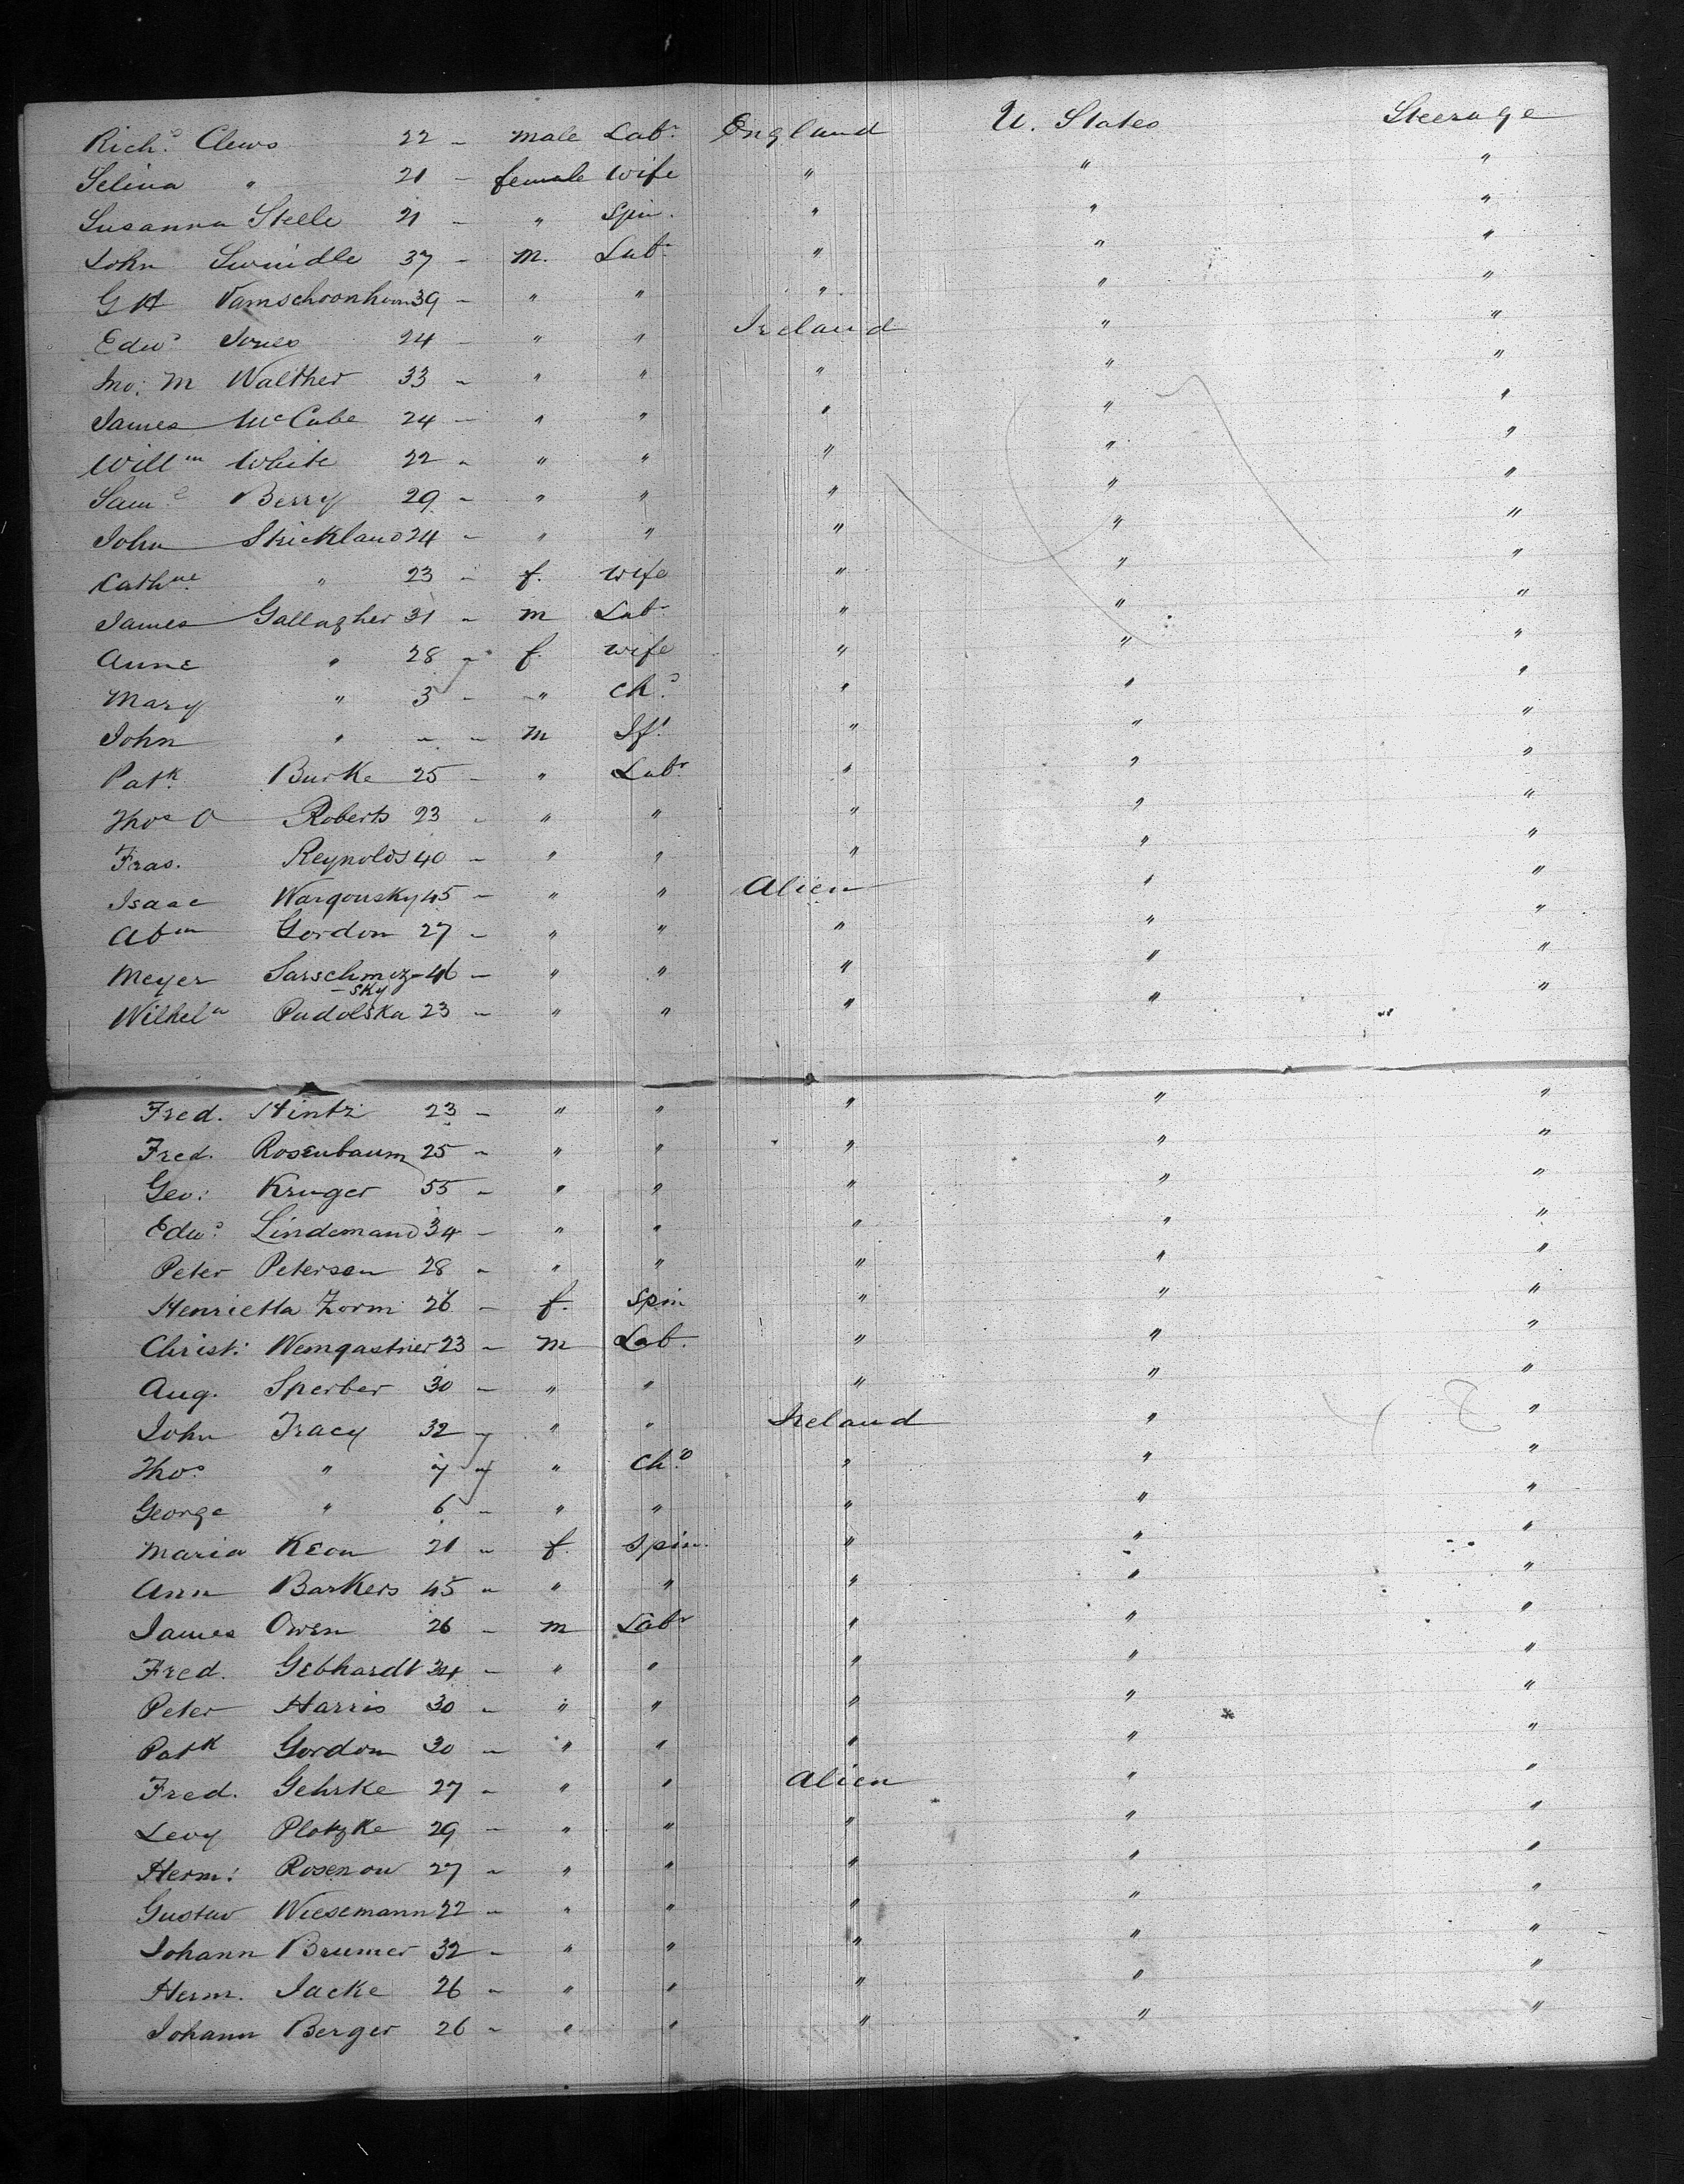 Richd. Clews 22 - male Labr. England U. States Steerage
Selina " 21 - female Wife " " "
Susanna Steele 21 - " Spin. " " "
John Swindle 37 - m. Labr. " " "
G H Vamschoonhim 39 - " " " " "
Edwd. Jones 24 - " " Ireland " "
Jno: M Walther 33 - " " " " "
James McCabe 24 - " " " " "
Willm White 22 - " " " " "
Saml. Berry 29 - " " " " "
John Strickland 24 - " " " " "
Cathne. " 23 - f. wife " " "
James Gallagher 31 - m Labr. " " "
Anne " 28 - f. wife " " "
Mary " 3 - " Chd. " " "
John " - - m Ift. " " "
Patk. Burke 25 - " Labr. " " "
Thos O Roberts 23 - " " " " "
Fras. Reynolds 40 - " " " " "
Isaac Wargousky 45 - " " Alien " "
Abm Gordon 27 - " " " " "
Meyer Sarschmez- 46 - " " " " "
-sky
Wilhelm Pudolska 23 - " " " " "
Fred. Hintz 23 - " " " " "
Fred. Rosenbaum 25 - " " " " "
Geo: Kruger 55 - " " " " "
Edwd: Lindemand 34 - " " " " "
Peter Petersen 28 - " " " " "
Henrietta Zorm 26 - f. Spin " " "
Christ: Wemgastner 23 - m Lab. " " "
Aug. Sperber 30 - " " " " "
John Tracy 32 - " " Ireland " "
Thos. " 7 - " Chd. " " "
George " 6 - " " " " "
Maria Keon 21 - f. Spin. " " "
Ann Barkers 45 - " " " " "
James Owen 26 - m Labr " " "
Fred. Gebhardt 34 - " " " " "
Peter Harris 30 - " " " " "
Patk Gordon 30 - " " " " "
Fred. Gehrke 27 - " " Alien " "
Levy Plotzke 29 - " " " " "
Herm: Rosenow 27 - " " " " "
Gustav Wiesemann 22 - " " " " "
Johann Brumer 32 - " " " " "
Herm. Jacke 26 - " " " " "
Johann Berger 26 - " " " " "